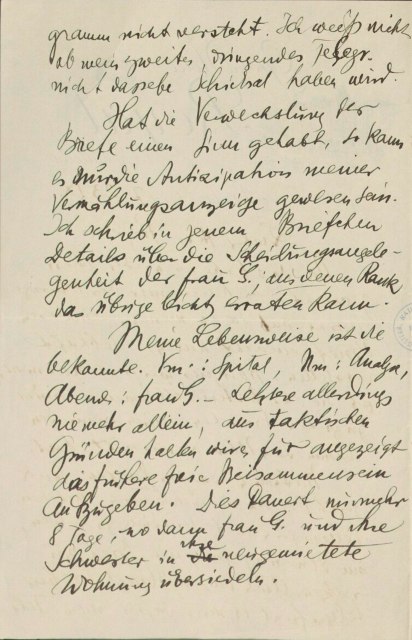 gramm nicht versteht. Ich weiß nicht
ob mein zweites, dringendes Telegr.
nicht dasselbe Schicksal haben wird.
Hat die Verwechslung der
Briefe einen Sinn gehabt, so kann
es nur die Antizipation meiner
Vermählungsanzeige gewesen sein.
Ich schrieb in jenem Briefchen
Details über die Scheidungsangele-
genheit der Frau G., aus denen Rank
das übrige leicht erraten kann.
Meine Lebensweise ist die
bekannte. Vm: Spital, Nm: Analyse,
Abend: Frau G. – Letztere allerdings
nie mehr allein, aus taktischen
Gründen halten wir es für angezeigt
das frühere freie Beisammensein
aufzugeben. Dies dauert nur mehr
8 Tage, wo dann Frau G. und ihre
Schwester in ihre neugemietete
Wohnung übersiedeln.